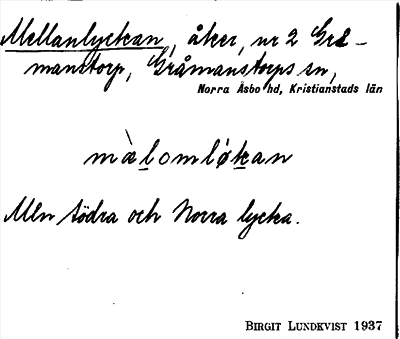 Mellanlyckan, åker, nr 2 Grå-
manstorp, Gråmanstorps sn,
Norra Åsbo hd, Kristianstads län
màlomløkan
Mln södra och Norra lycka.
BIRGIT LUNDKVIST 1937